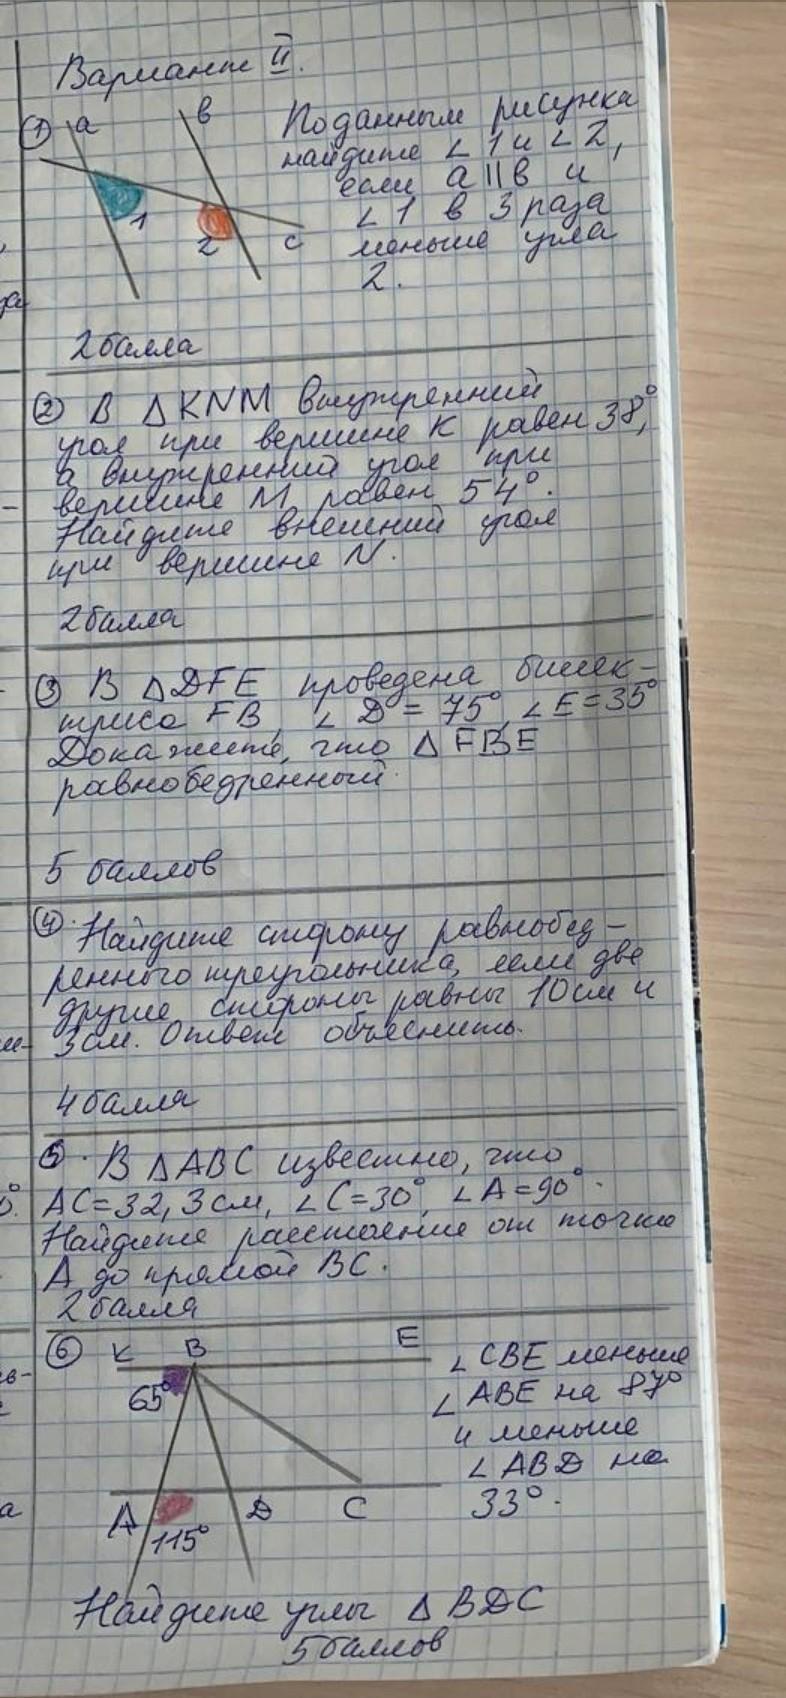 Вариант II.
① a
в
1
2
c
По данным рисунка
найдите ∠1 и ∠2,
если a||в и
∠1 в 3 раза
меньше угла
2.
2 балла
② В △KNM внутренний
угол при вершине K равен 38°,
а внутренний угол при
вершине M равен 54°.
Найдите внешний угол
при вершине N.
2 балла
③ В △DFE проведена биссек-
триса FB, ∠D = 75°, ∠E=35°
Докажите, что △FBE
равнобедренный.
5 баллов
④ Найдите сторону равнобед-
ренного треугольника, если две
другие стороны равны 10 см и
3 см. Ответ объяснить.
4 балла
⑤ В △ABC известно, что
AC=32,3 см, ∠C=30°, ∠A=90°.
Найдите расстояние от точки
A до прямой BC.
2 балла
⑥ K B E
65°
A D C
115°
∠CBE меньше
∠ABE на 87°
и меньше
∠ABD на
33°.
Найдите углы △BDC
5 баллов